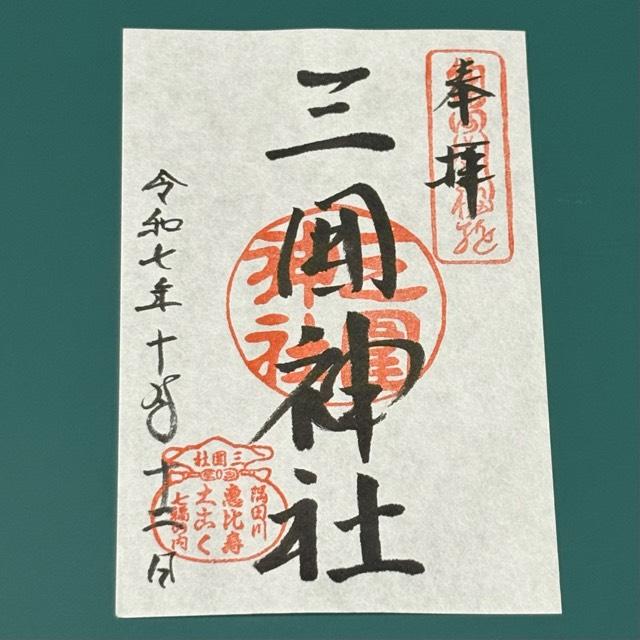 奉拝
三囲神社
三圍神社
令和七年十月十二日
三囲社
隅田川
恵比寿
大こく
七福の内